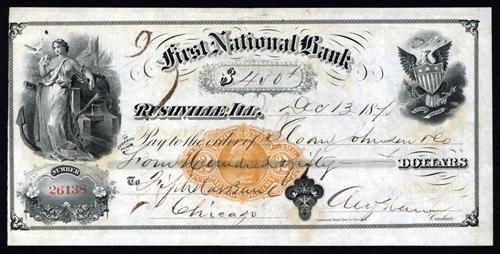 First National Bank
$450
RUSHVILLE, ILL. Dec 13 187
Pay to the order of Sloan Johnson & Co
Four Hundred & fifty DOLLARS
NUMBER
26138
To Fifth Nat Bank
Chicago
Cashier